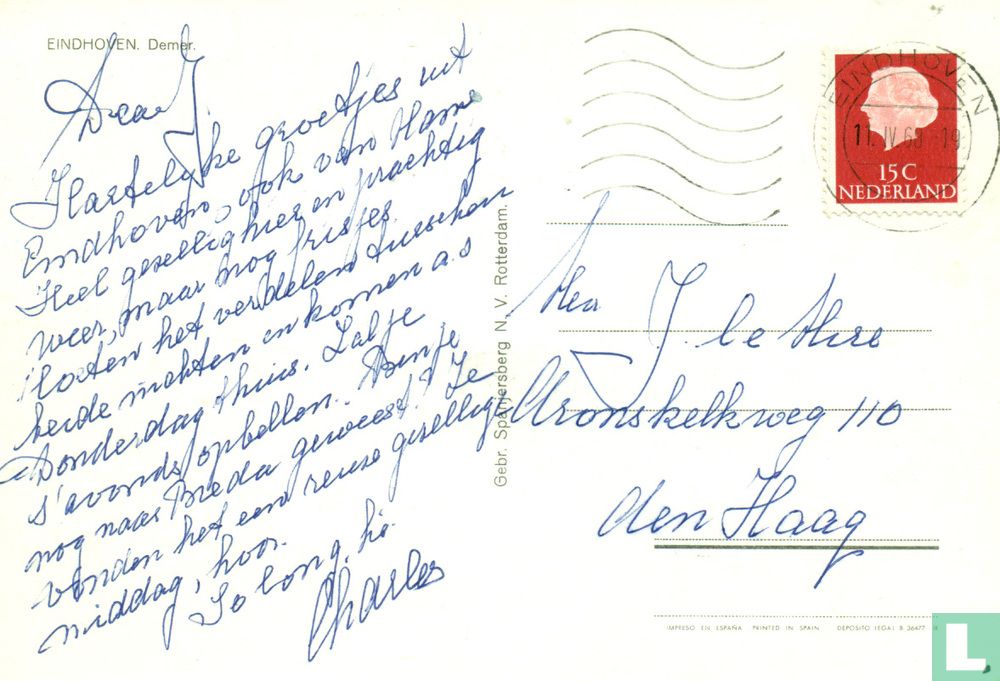 EINDHOVEN. Demer.
Dear J
Hartelijke groetjes uit
Eindhoven, ook van Hans
Heel gezellig hier en prachtig
weer, maar nog frisjes.
Moeten het verdelen tusschen
beide machten en komen a.s
Donderdag thuis. Zal je
s'avonds opbellen. Ben je
nog naar Breda geweest? We
vonden het een reuze gezellige
middag, hoor.
So long, hè
Charles
Gebr. Spanjersberg N. V. Rotterdam.
EINDHOVEN
11. IV 68 -19
15 C
NEDERLAND
J. le
Aronskelkweg 110
den Haag
IMPRESO EN ESPAÑA PRINTED IN SPAIN DEPOSITO LEGAL B. 36477
L